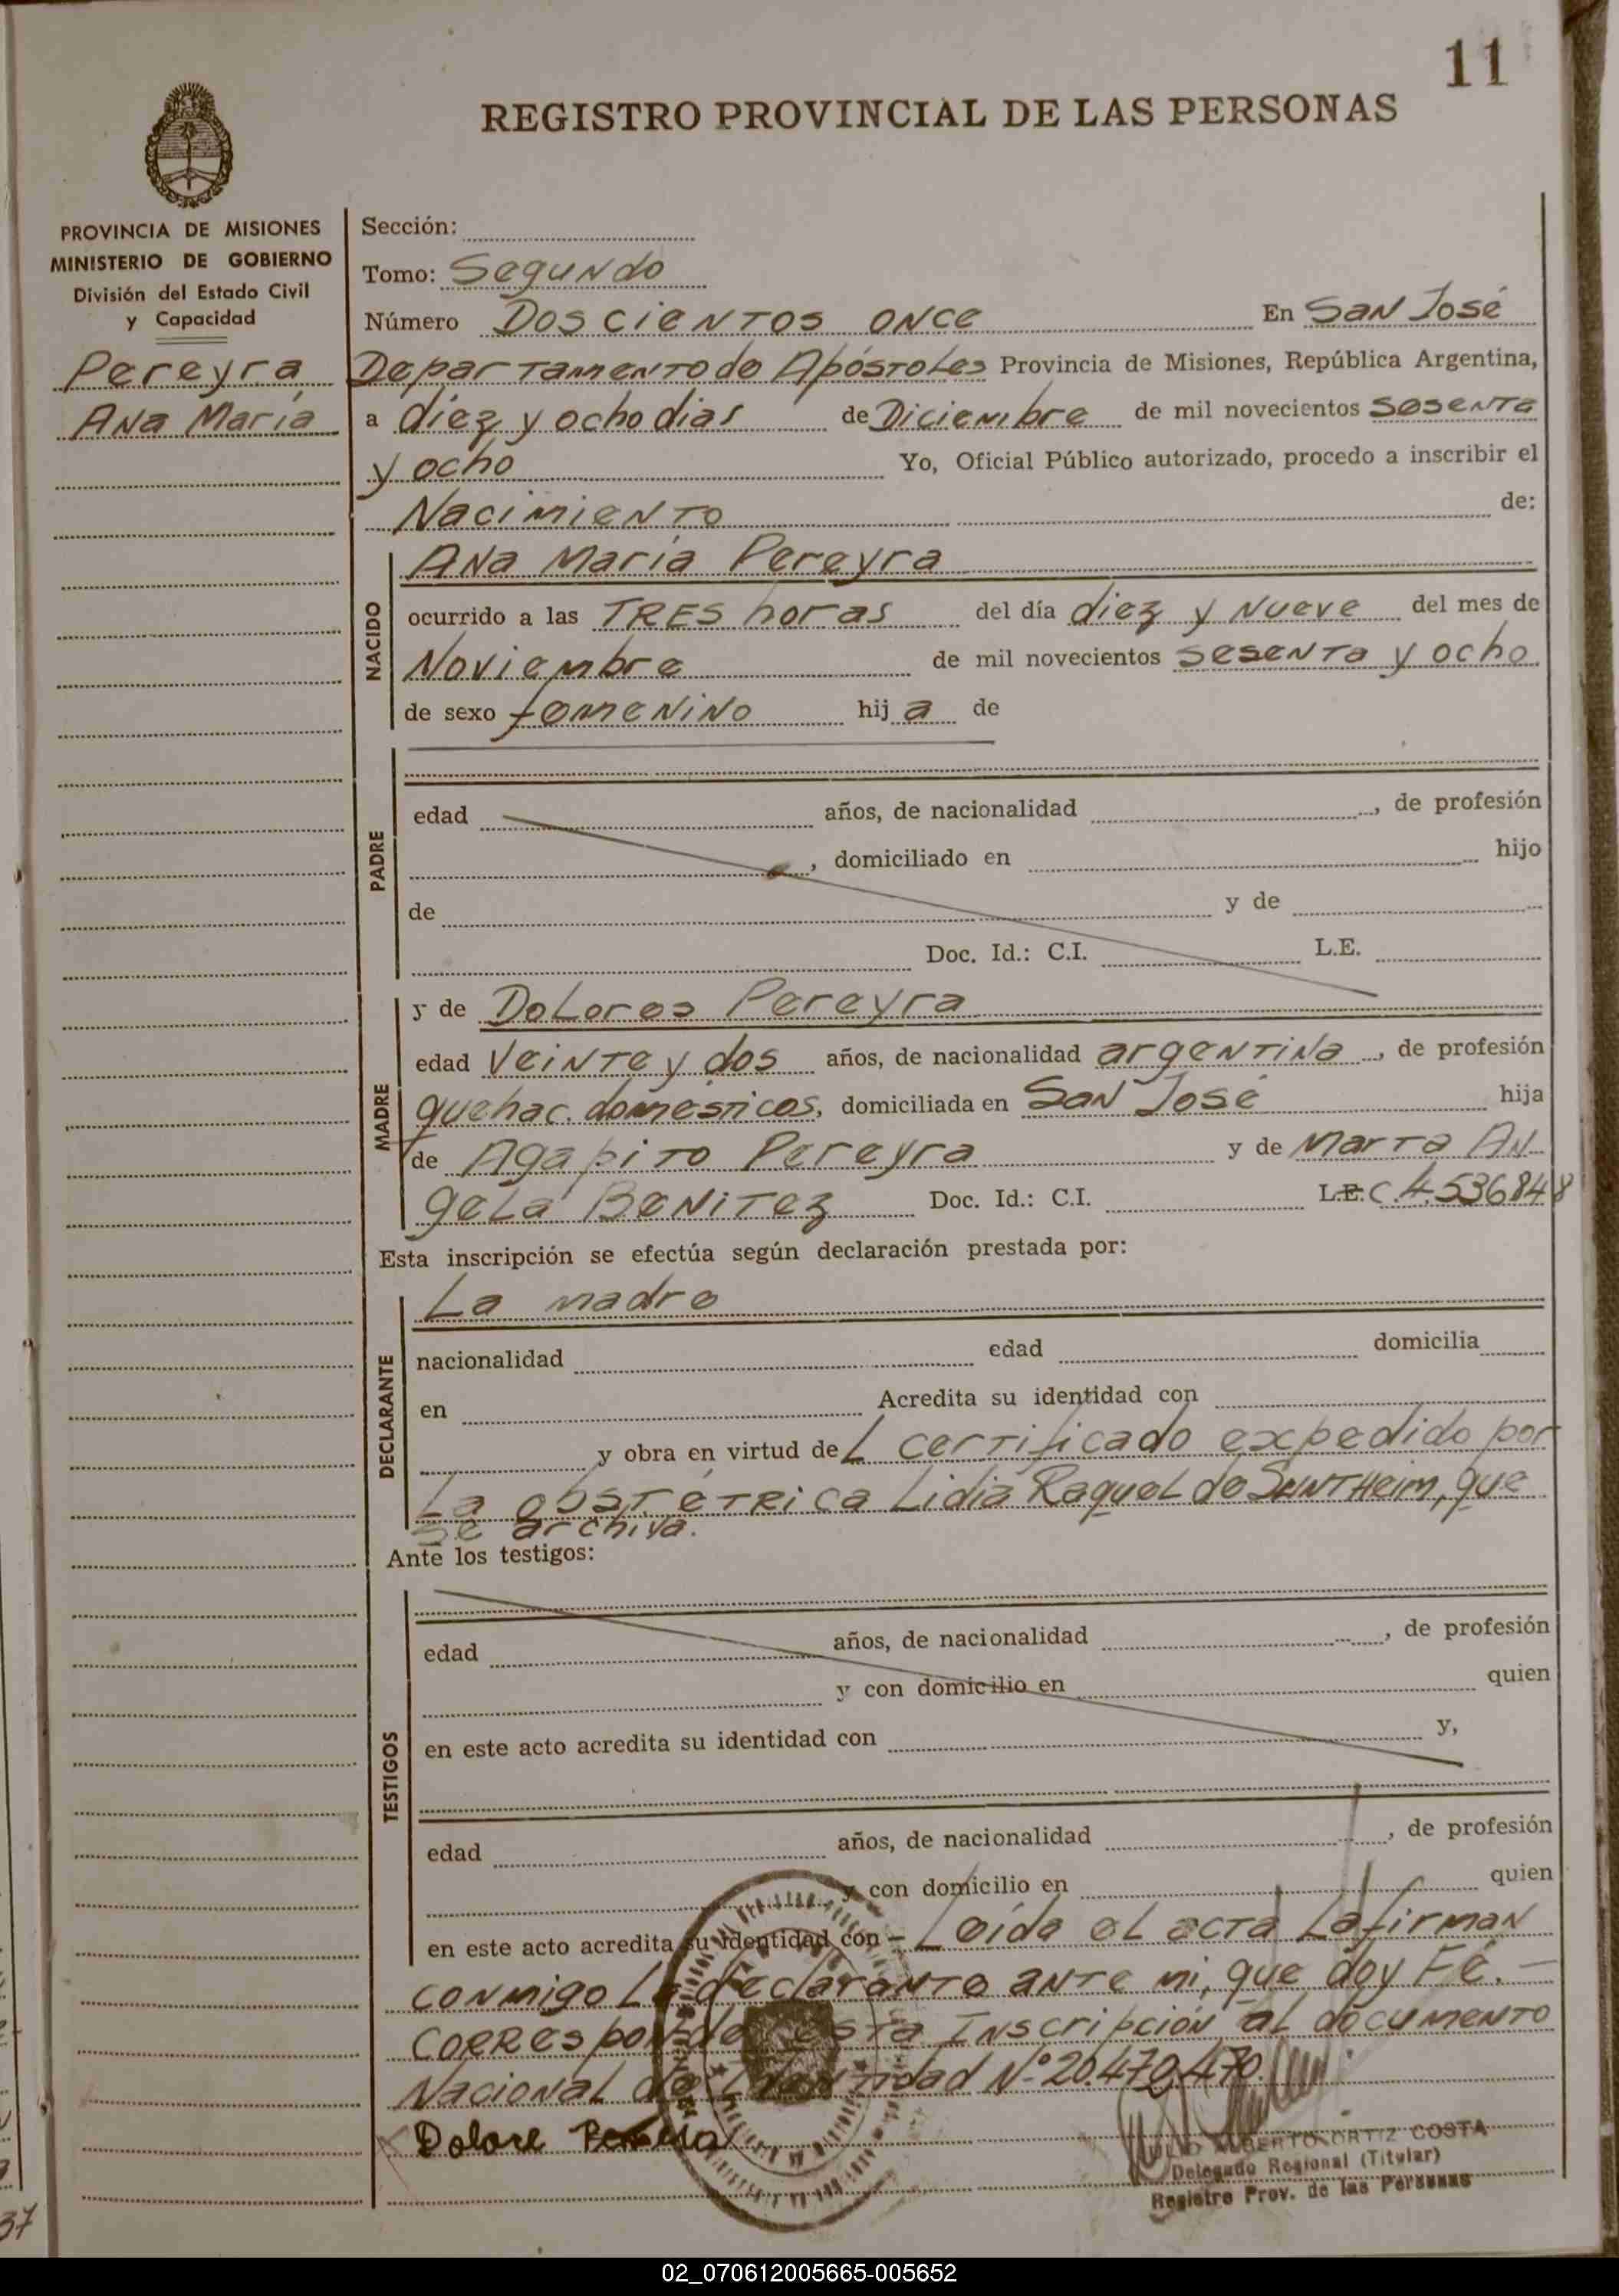 11
REGISTRO PROVINCIAL DE LAS PERSONAS
PROVINCIA DE MISIONES
MINISTERIO DE GOBIERNO
División del Estado Civil
y Capacidad
Pereyra
Ana María
Sección:
Tomo: Segundo
Número Doscientos once En San José
Departamento de Apóstoles Provincia de Misiones, República Argentina,
a diez y ocho dias de Diciembre de mil novecientos sesenta
y ocho Yo, Oficial Público autorizado, procedo a inscribir el
Nacimiento de:
NACIDO
Ana María Pereyra
ocurrido a las TRES horas del día diez y nueve del mes de
Noviembre de mil novecientos sesenta y ocho
de sexo femenino hij a de
PADRE
edad años, de nacionalidad , de profesión
, domiciliado en hijo
de y de
Doc. Id.: C.I. L.E.
MADRE
y de Dolores Pereyra
edad veinte y dos años, de nacionalidad argentina , de profesión
quehac. domésticos, domiciliada en San José hija
de Agapito Pereyra y de Marta An
gela Benitez Doc. Id.: C.I. L.E.C. 4.536848
Esta inscripción se efectúa según declaración prestada por:
DECLARANTE
La madre
nacionalidad edad domicilia
en Acredita su identidad con
y obra en virtud del certificado expedido por
La obstétrica Lidia Raquel de SUNTHeim, que
se archiva.
Ante los testigos:
TESTIGOS
edad años, de nacionalidad , de profesión
y con domicilio en quien
en este acto acredita su identidad con y,
edad años, de nacionalidad , de profesión
y con domicilio en quien
en este acto acredita su identidad con - Leída el acta La firman
conmigo La declarante ante mi, que doy Fé. -
Corresponde esta Inscripción al documento
Nacional de Identidad N° 20.470.470.
Dolore Pereyra
JULIO ALBERTO ORTIZ COSTA
Delegado Regional (Titular)
Registro Prov. de las Personas
37
02_070612005665-005652